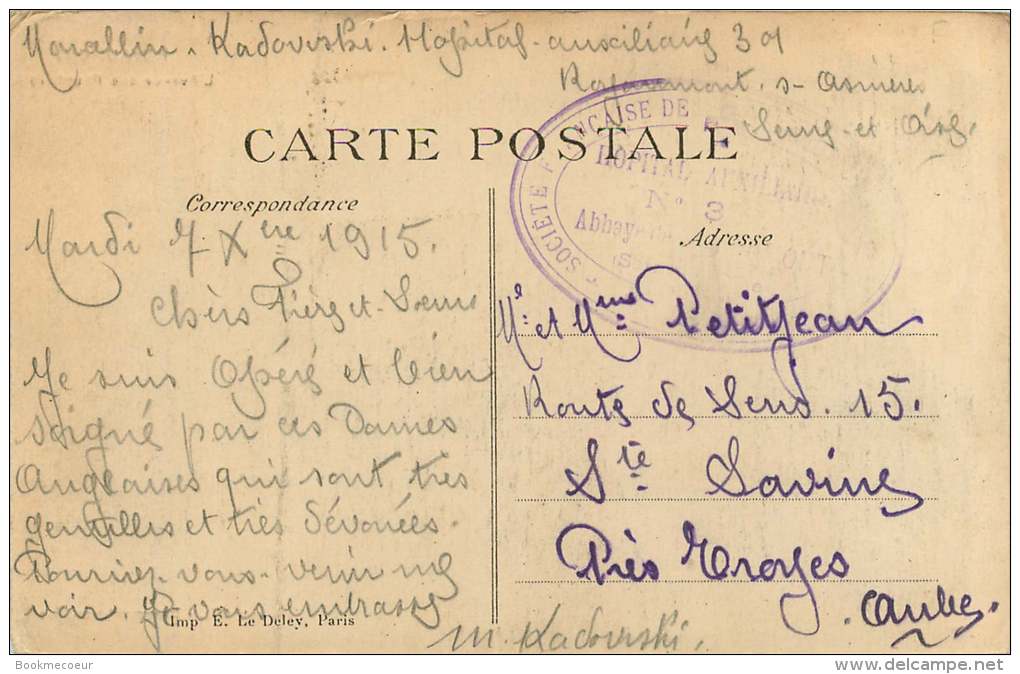 Marcellin. Kadovski. Hopital auxiliaire 301
Royaumont. s- Asnières
Seine et Oise.
CARTE POSTALE
SOCIÉTÉ FRANÇAISE DE
HÔPITAL AUXILIAIRE
N° 3
Abbaye
Correspondance
Adresse
Mardi 7 Xbre 1915.
Chers Père et Sœur
Je suis Opéré et bien
soigné par ces Dames
Anglaises qui sont très
gentilles et très dévouées.
Pourriez-vous venir me
voir. Je vous embrasse
M. Kadovski.
Mr et Mme PetitJean
Route de Sens. 15.
Ste Savine
Près Troyes
Aube.
Imp E. Le Deley, Paris
Bookmecoeur
www.delcampe.net